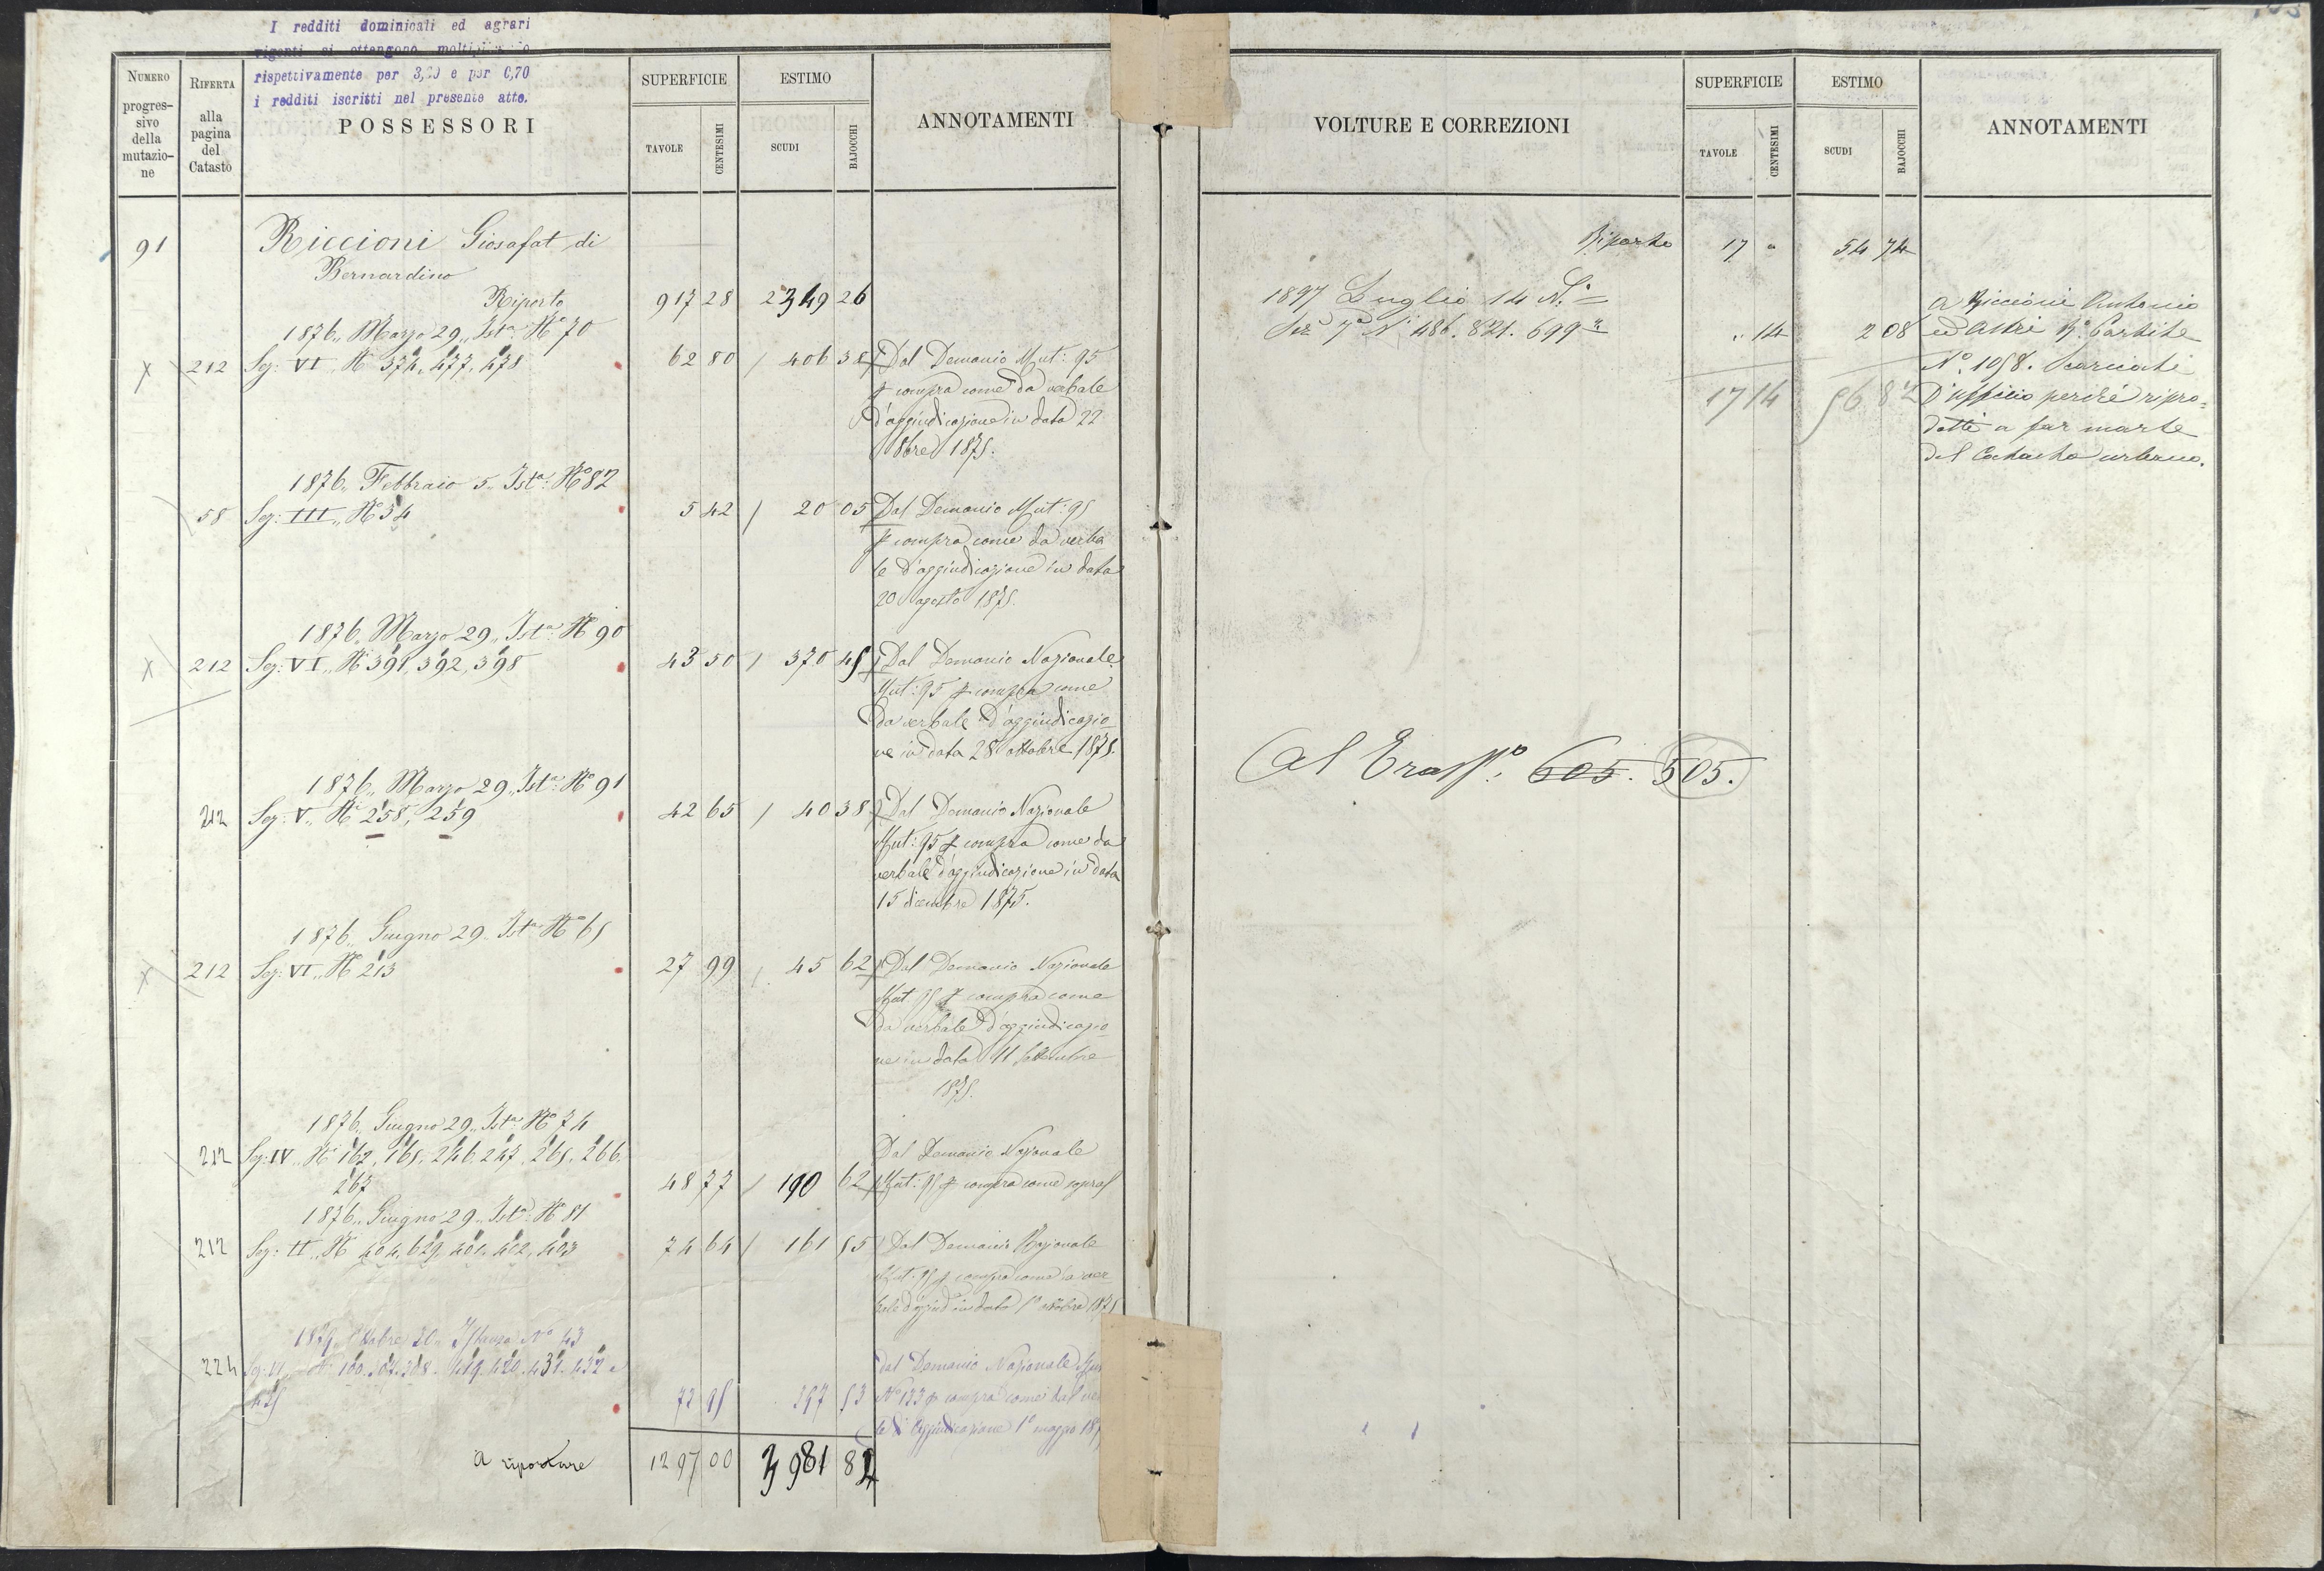 I redditi dominicali ed agrari
vigenti si ottengono
rispettivamente per e per 0,70
i redditi iscritti nel presente atto.
NUMERO progres-
sivo
della
mutazio-
ne
RIFERTA
alla
pagina
del
Catasto
POSSESSORI
SUPERFICIE
TAVOLE CENTESIMI
ESTIMO
SCUDI BAJOCCHI
ANNOTAMENTI
91 Riccioni Giosafat di
Bernardino
Riporto 917 28 2349 26
1876,, Marzo 29,, Ista: No 70
X 212 Sez: VI,, Ni 374, 477, 478 62 80 / 406 38 Dal Demanio Mut: 95
compra come da verbale
d'aggiudicazione in data 22
8bre 1875.
1876,, Febbraio 5,, Ista: No 82
58 Sez: III,, No 34 5 42 / 20 05 Dal Demanio Mut: 95
compra come da verba
le d'aggiudicazione in data
20 agosto 1875.
1876,, Marzo 29,, Ista: No 90
X 212 Sez: VI,, Ni 391, 392, 398 43 50 / 370 45 Dal Demanio Nazionale
Mut: 95 compra come
da verbale d'aggiudicazio
ne in data 28 ottobre 1875.
1876,, Marzo 29,, Ista: No 91
212 Sez: V,, Ni 258, 259 42 65 / 40 38 Dal Demanio Nazionale
Mut: 95 compra come da
verbale d'aggiudicazione in data
15 dicembre 1875.
1876,, Giugno 29,, Ista No 65
X 212 Sez: VI,, No 213 27 99 / 45 62 Dal Demanio Nazionale
Mut 95 compra come
da verbale d'aggiudicazio
ne in data 11 Settembre
1875.
1876,, Giugno 29,, Ista: No 74
212 Sez: IV,, Ni 162, 165, 246, 247, 265, 266, Dal Demanio Nazionale
267 48 77 / 190 62 Mut: 95 compra come sopra
1876,, Giugno 29,, Ista: No 81
212 Sez: II,, Ni 404, 629, 401, 402, 403 74 64 / 161 55 Dal Demanio Nazionale
Mut: 95 compra come da ver
bale d'aggiud in data 1o ottobre 1875
20,, Istanza No 43
224 Sez: VI 419. 420. 431. 432 e Dal Demanio Nazionale
72 95 397 53 No 133 compra come dal
di Aggiudicazione 1o maggio
A riportare 1297 00 3981 82
VOLTURE E CORREZIONI
SUPERFICIE
TAVOLE CENTESIMI
ESTIMO
SCUDI BAJOCCHI
ANNOTAMENTI
Riporto 17 " 54 74
1897 Luglio 14 N.o = A Riccioni Antonio
Sez 7a Ni 486. 821. 699 " 14 2 08 ed Altri Pa Partite
No 1058. Scaricati
17 14 56 82 D'ufficio perché ripro=
dotti a far parte
del Catasto urbano.
Al Trasp.o: 605. 505.